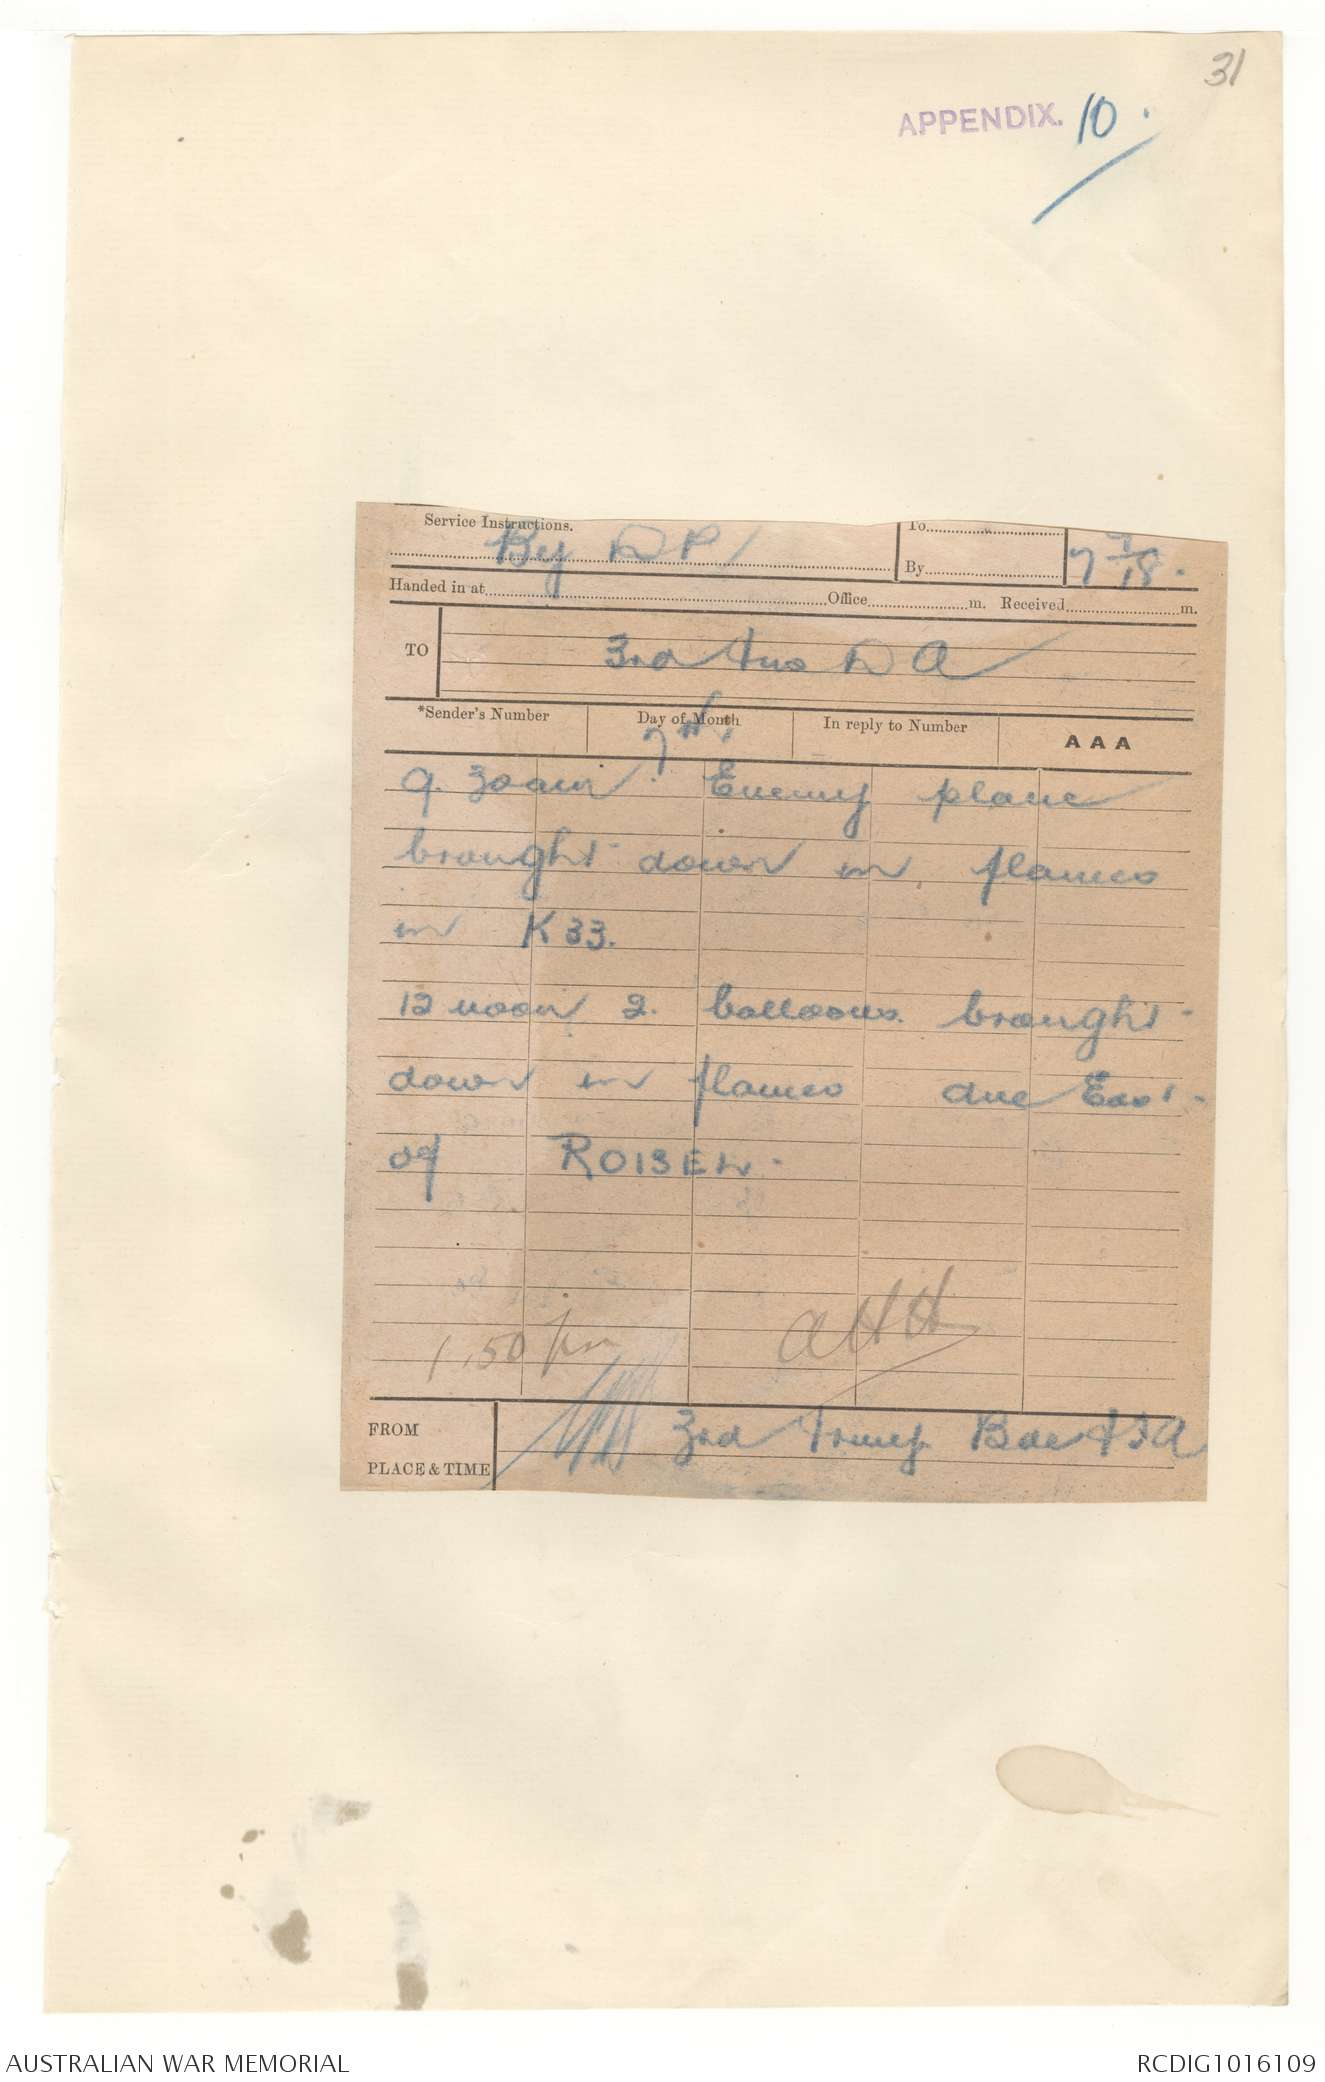 31
APPENDIX. 10.
Service Instructions. By DR/
To
By
7
Handed in at Office m. Received m.
TO 3rd Aus D A
*Sender's Number Day of Month In reply to Number AAA
7th
9.30am Enemy plane
brought down in flames
in K33.
12 noon 2. balloons brought
down in flames due East
of ROISEL.
1.50 pm AHH
FROM 3rd Army Bde
PLACE & TIME
AUSTRALIAN WAR MEMORIAL RCDIG1016109